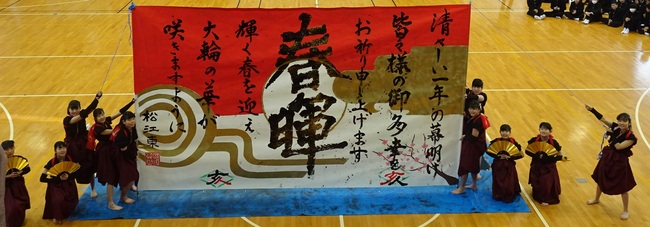 清々しい一年の幕明け
皆々様の御多幸を
お祈り申し上げます
春暉
輝く春を迎え
大輪の華が
咲きますように
松江東
亥
亥